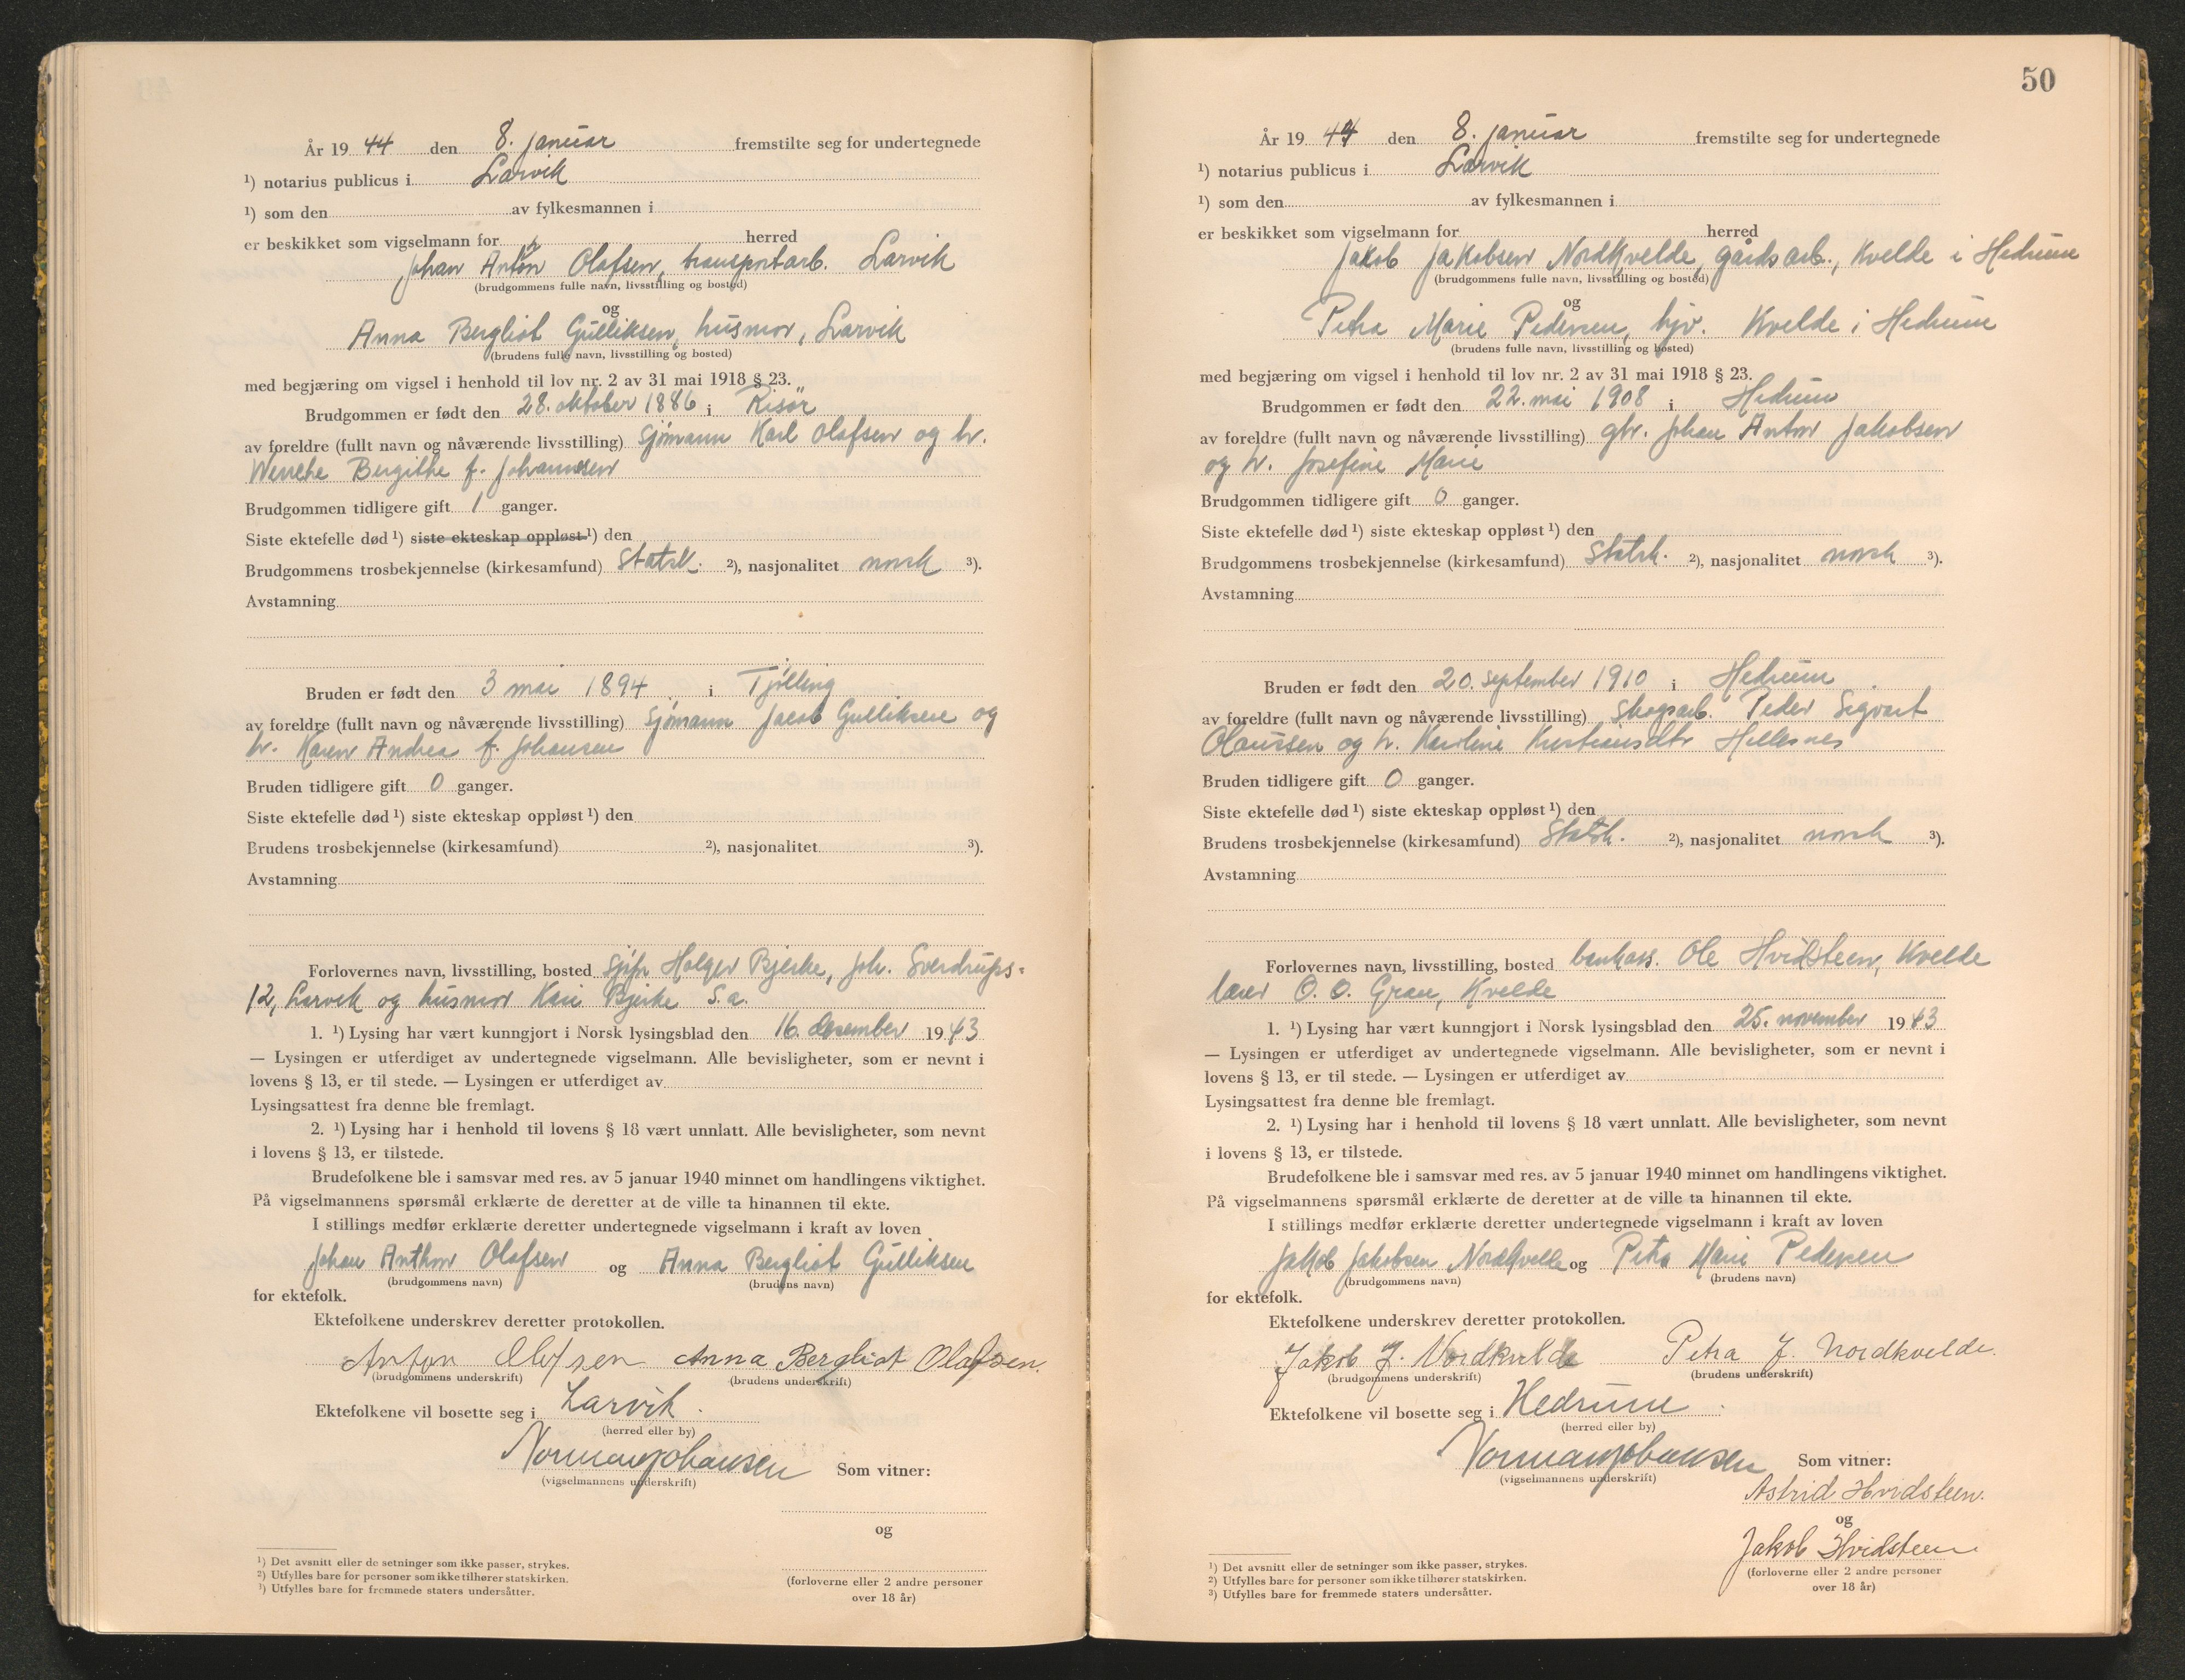 År 19 44 den 8. januar fremstilte seg for undertegnede
¹) notarius publicus i Larvik
¹) som den av fylkesmannen i
er beskikket som vigselmann for herred
Johan Anton Olafsen, transportarb. Larvik
(brudgommens fulle navn, livsstilling og bosted)
og
Anna Bergliot Gulliksen, husmor, Larvik
(brudens fulle navn, livsstilling og bosted)
med begjæring om vigsel i henhold til lov nr. 2 av 31 mai 1918 § 23.
Brudgommen er født den 28. oktober 1886 i Risör
av foreldre (fullt navn og nåværende livsstilling) sjömann Karl Olafsen og h.
Wenche Bergithe f. Johannesen
Brudgommen tidligere gift 1 ganger.
Siste ektefelle død ¹) siste ekteskap oppløst ¹) den
Brudgommens trosbekjennelse (kirkesamfund) Statsk. ²), nasjonalitet norsk ³).
Avstamning
Bruden er født den 3 mai 1894 i Tjölling
av foreldre (fullt navn og nåværende livsstilling) sjömann Jacob Gulliksen og
h. Karen Andrea f. Johansen
Bruden tidligere gift 0 ganger.
Siste ektefelle død ¹) siste ekteskap oppløst ¹) den
Brudens trosbekjennelse (kirkesamfund) ²), nasjonalitet ³).
Avstamning
Forlovernes navn, livsstilling, bosted Holger Bjerke, Joh. Sverdrups-
12, Larvik og husmor Kari Bjerke s.a.
1. ¹) Lysing har vært kunngjort i Norsk lysingsblad den 16. desember 19 43
— Lysingen er utferdiget av undertegnede vigselmann. Alle bevisligheter, som er nevnt i
lovens § 13, er til stede. — Lysingen er utferdiget av
Lysingsattest fra denne ble fremlagt.
2. ¹) Lysing har i henhold til lovens § 18 vært unnlatt. Alle bevisligheter, som nevnt
i lovens § 13, er tilstede.
Brudefolkene ble i samsvar med res. av 5 januar 1940 minnet om handlingens viktighet.
På vigselmannens spørsmål erklærte de deretter at de ville ta hinannen til ekte.
I stillings medfør erklærte deretter undertegnede vigselmann i kraft av loven
Johan Anthon Olafsen og Anna Bergliot Gulliksen
(brudgommens navn) (brudens navn)
for ektefolk.
Ektefolkene underskrev deretter protokollen.
Anton Olafsen Anna Bergliot Olafsen.
(brudgommens underskrift) (brudens underskrift)
Ektefolkene vil bosette seg i Larvik.
(herred eller by)
Norman Johansen Som vitner:
(vigselmannens underskrift)
og
¹) Det avsnitt eller de setninger som ikke passer, strykes.
²) Utfylles bare for personer som ikke tilhører statskirken.
³) Utfylles bare for fremmede staters undersåtter.
(forloverne eller 2 andre personer
over 18 år)
50
År 19 44 den 8. januar fremstilte seg for undertegnede
¹) notarius publicus i Larvik
¹) som den av fylkesmannen i
er beskikket som vigselmann for herred
Jakob Jakobsen Nordkvelde, gårdsarb., Kvelde i Hedrum
(brudgommens fulle navn, livsstilling og bosted)
og
Petra Marie Pedersen, hjv. Kvelde i Hedrum
(brudens fulle navn, livsstilling og bosted)
med begjæring om vigsel i henhold til lov nr. 2 av 31 mai 1918 § 23.
Brudgommen er født den 22. mai 1908 i Hedrum
av foreldre (fullt navn og nåværende livsstilling) gbr. Johan Anton Jakobsen
og h. Josefine Marie
Brudgommen tidligere gift 0 ganger.
Siste ektefelle død ¹) siste ekteskap oppløst ¹) den
Brudgommens trosbekjennelse (kirkesamfund) Statsk. ²), nasjonalitet norsk ³).
Avstamning
Bruden er født den 20. september 1910 i Hedrum
av foreldre (fullt navn og nåværende livsstilling) skogsarb. Peder Sigvart
Olaussen og h. Karoline Kristiansdtr Hellesnes
Bruden tidligere gift 0 ganger.
Siste ektefelle død ¹) siste ekteskap oppløst ¹) den
Brudens trosbekjennelse (kirkesamfund) Statsk. ²), nasjonalitet norsk ³).
Avstamning
Forlovernes navn, livsstilling, bosted bankass. Ole Hvidsteen, Kvelde
lærer O. O. Grau, Kvelde
1. ¹) Lysing har vært kunngjort i Norsk lysingsblad den 25. november 19 43
— Lysingen er utferdiget av undertegnede vigselmann. Alle bevisligheter, som er nevnt i
lovens § 13, er til stede. — Lysingen er utferdiget av
Lysingsattest fra denne ble fremlagt.
2. ¹) Lysing har i henhold til lovens § 18 vært unnlatt. Alle bevisligheter, som nevnt
i lovens § 13, er tilstede.
Brudefolkene ble i samsvar med res. av 5 januar 1940 minnet om handlingens viktighet.
På vigselmannens spørsmål erklærte de deretter at de ville ta hinannen til ekte.
I stillings medfør erklærte deretter undertegnede vigselmann i kraft av loven
Jakob Jakobsen Nordkvelle og Petra Marie Pedersen
(brudgommens navn) (brudens navn)
for ektefolk.
Ektefolkene underskrev deretter protokollen.
Jakob J. Nordkvelde Petra J. Nordkvelde.
(brudgommens underskrift) (brudens underskrift)
Ektefolkene vil bosette seg i Hedrum
(herred eller by)
Norman Johansen Som vitner:
(vigselmannens underskrift)
Astrid Hvidsteen.
og
Jakob Hvidsteen
¹) Det avsnitt eller de setninger som ikke passer, strykes.
²) Utfylles bare for personer som ikke tilhører statskirken.
³) Utfylles bare for fremmede staters undersåtter.
(forloverne eller 2 andre personer
over 18 år)